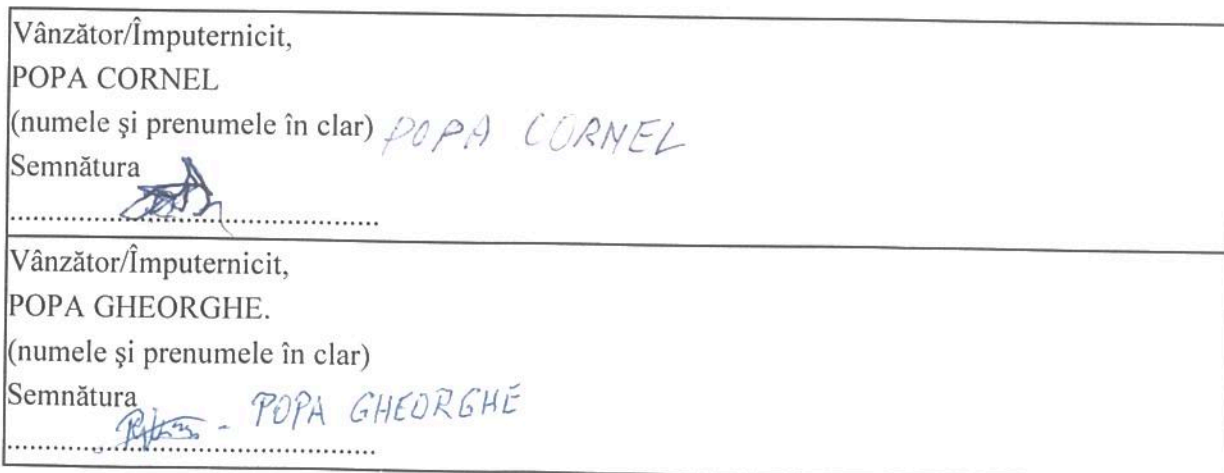 Vânzător/Împuternicit,
POPA CORNEL
(numele şi prenumele în clar) POPA CORNEL
Semnătura
................................................
Vânzător/Împuternicit,
POPA GHEORGHE.
(numele şi prenumele în clar)
Semnătura
- POPA GHEORGHE
................................................